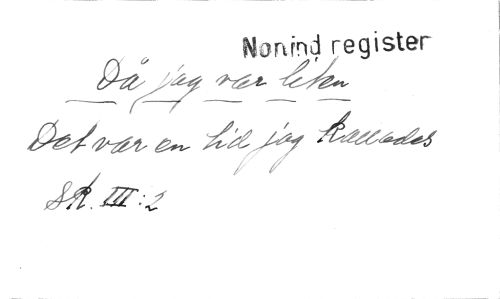 Nonind register
Då jag var liten
Det var en tid jag kallades
SR. III:2